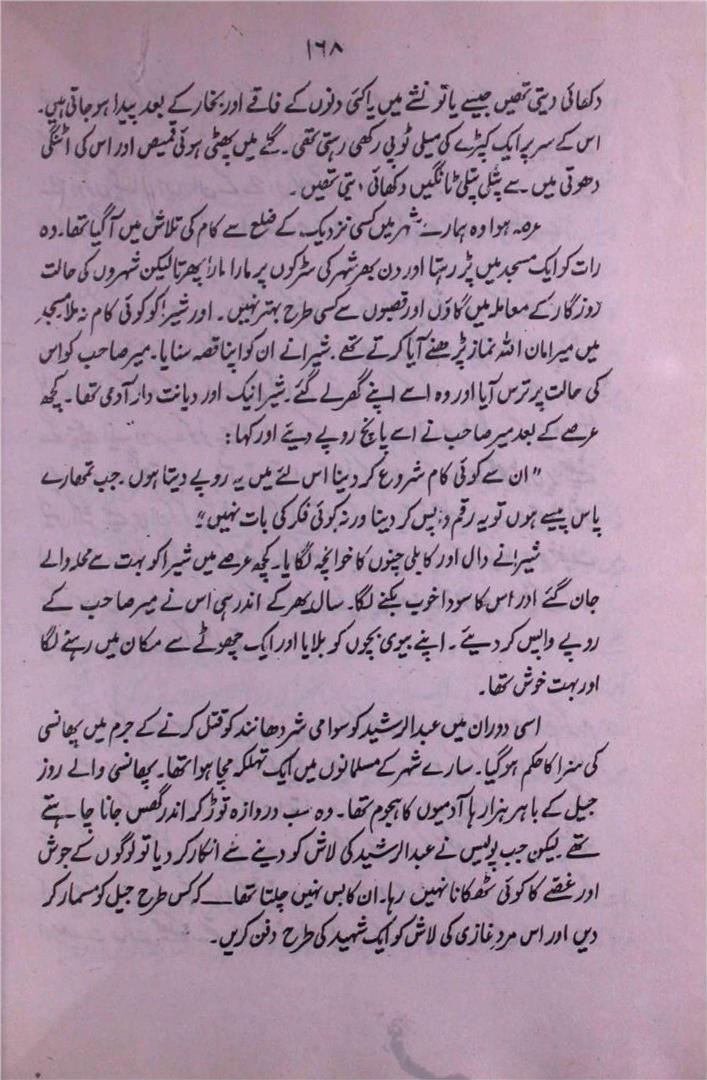 ۱۶۸
دکھائی دیتی تھیں جیسے یا تو نشے میں یا کئی دنوں کے فاقے اور بخار کے بعد پیدا ہو جاتی ہیں۔
اس کے سر پر ایک کپڑے کی میلی ٹوپی رکھی رہتی تھی۔ گلے میں پھٹی ہوئی قمیص اور اس کی اٹنگی
دھوتی میں سے پتلی پتلی ٹانگیں دکھائی دیتی تھیں۔
عرصہ ہوا وہ ہمارے شہر میں کسی نزدیک کے ضلع سے کام کی تلاش میں آ گیا تھا۔ وہ
رات کو ایک مسجد میں پڑ رہتا اور دن بھر شہر کی سڑکوں پر مارا مارا پھرتا لیکن شہروں کی حالت
روزگار کے معاملہ میں گاؤں اور قصبوں سے کسی طرح بہتر نہیں۔ اور شیرا کو کوئی کام نہ ملا مسجد
میں میر امان اللہ نماز پڑھنے آیا کرتے تھے۔ شیرا نے ان کو اپنا قصہ سنایا۔ میر صاحب کو اس
کی حالت پر ترس آیا اور وہ اسے اپنے گھر لے گئے۔ شیرا نیک اور دیانت دار آدمی تھا۔ کچھ
عرصے کے بعد میر صاحب نے اسے پانچ روپے دیئے اور کہا:
"ان سے کوئی کام شروع کر دینا اس لئے میں یہ روپے دیتا ہوں۔ جب تمھارے
پاس پیسے ہوں تو یہ رقم واپس کر دینا ورنہ کوئی فکر کی بات نہیں"۔
شیرا نے دال اور کابلی چنوں کا خوانچہ لگایا۔ کچھ عرصے میں شیرا کو بہت سے محلہ والے
جان گئے اور اس کا سودا خوب بکنے لگا۔ سال بھر کے اندر ہی اس نے میر صاحب کے
روپے واپس کر دیئے۔ اپنے بیوی بچوں کو بلایا اور ایک چھوٹے سے مکان میں رہنے لگا
اور بہت خوش تھا۔
اسی دوران میں عبدالرشید کو سوامی شردھانند کو قتل کرنے کے جرم میں پھانسی
کی سزا کا حکم ہو گیا۔ سارے شہر کے مسلمانوں میں ایک تہلکہ مچا ہوا تھا۔ پھانسی والے روز
جیل کے باہر ہزارہا آدمیوں کا ہجوم تھا۔ وہ سب دروازہ توڑ کر اندر گھس جانا چاہتے
تھے۔ لیکن جب پولیس نے عبدالرشید کی لاش کو دینے سے انکار کر دیا تو لوگوں کے جوش
اور غصے کا کوئی ٹھکانا نہیں رہا۔ ان کا بس نہیں چلتا تھا ـــ کہ کس طرح جیل کو مسمار کر
دیں اور اس مرد غازی کی لاش کو ایک شہید کی طرح دفن کریں۔